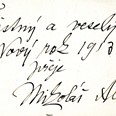 stný a veselý
Nový rok 19
přeje
Mikoláš A